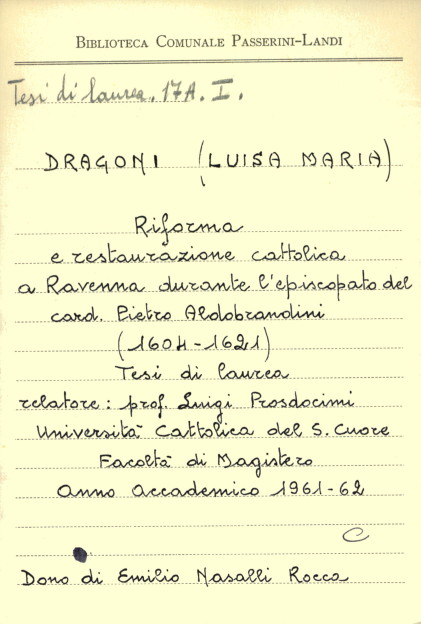 BIBLIOTECA COMUNALE PASSERINI-LANDI
Tesi di laurea. 17A. I.
DRAGONI (LUISA MARIA)
Riforma
e restaurazione cattolica
a Ravenna durante l'episcopato del
card. Pietro Aldobrandini
(1604-1621)
Tesi di laurea
relatore: prof. Luigi Prosdocimi
Università Cattolica del S. Cuore
Facoltà di Magistero
Anno Accademico 1961-62
C
Dono di Emilio Nasalli Rocca